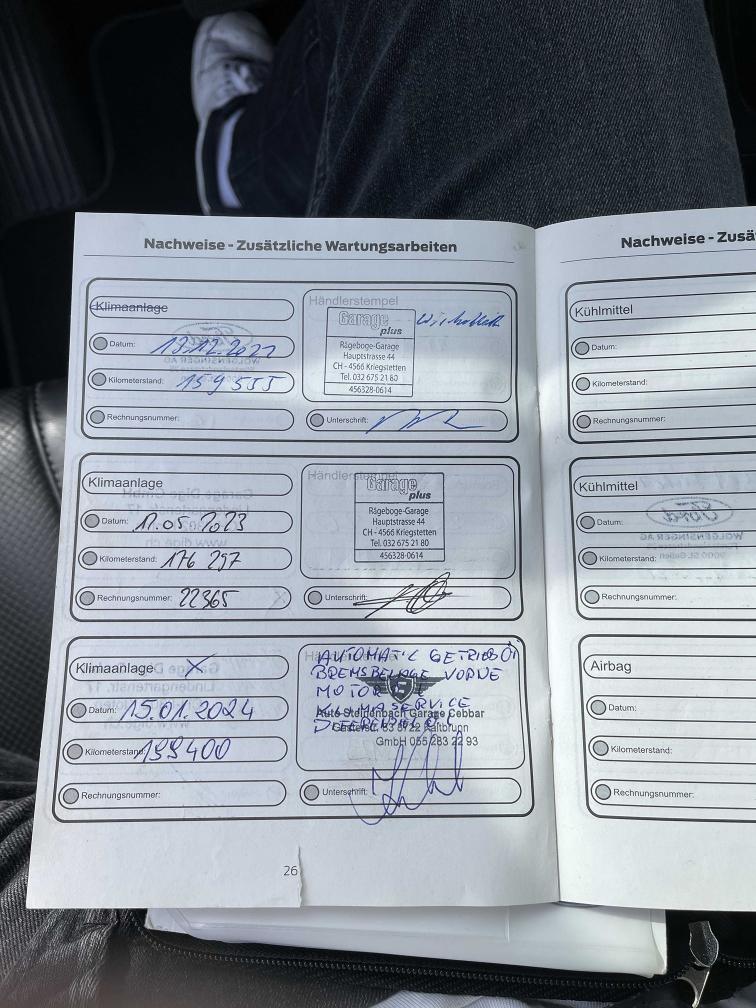 Nachweise - Zusätzliche Wartungsarbeiten
Klimaanlage
Datum:
Kilometerstand: 159 555
Rechnungsnummer:
Händlerstempel
Garage
plus
Rägeboge-Garage
Hauptstrasse 44
CH - 4566 Kriegstetten
Tel. 032 675 21 80
456328-0614
Unterschrift:
Klimaanlage
Datum: 11.05.2023
Kilometerstand: 176 297
Rechnungsnummer: 22365
Händlerstempel
Garage
plus
Rägeboge-Garage
Hauptstrasse 44
CH - 4566 Kriegstetten
Tel. 032 675 21 80
456328-0614
Unterschrift:
Klimaanlage X
Datum: 15.01.2024
Kilometerstand: 199400
Rechnungsnummer:
AUTOMATIC GETRIEBÖL
BREMSBELÄGE VORNE
MOTOR
KLIMASERVICE
Auto Steinenbach Garage Cebbar
Kaltbrunn
GmbH 055 283 22 93
Unterschrift:
26
Nachweise - Zusä
Kühlmittel
Datum:
Kilometerstand:
Rechnungsnummer:
Kühlmittel
Datum:
Kilometerstand:
Rechnungsnummer:
Airbag
Datum:
Kilometerstand:
Rechnungsnummer: